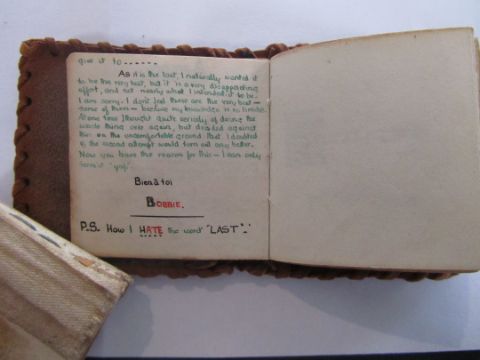 give it to ......
As it is the last, I naturally wanted it
to be the very best, but it is a very disappointing
effort, and not nearly what I intended it to be.
I am sorry. I don't feel these are the very best —
some of them — because my knowledge is so limited.
At one time I thought quite seriously of doing the
whole thing over again, but decided against
this on the uncomfortable ground that I doubted
if the second attempt would turn out any better.
Now you have the reason for this — I can only
Bien à toi
BOBBIE.
P.S. How I HATE the word "LAST".